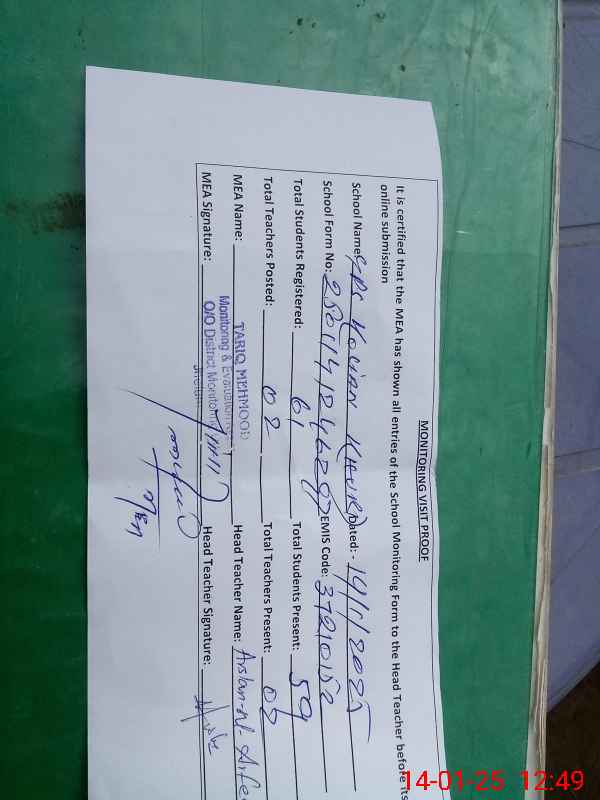 MONITORING VISIT PROOF
It is certified that the MEA has shown all entries of the School Monitoring Form to the Head Teacher before its
online submission
School Name: GPS Khurd Dated: - 14/1/2025
School Form No: EMIS Code: 37210152
Total Students Registered: 61 Total Students Present: 59
Total Teachers Posted: 02 Total Teachers Present: 02
MEA Name: TARIQ MEHMOOD Head Teacher Name: Arslan-ul-
Monitoring & Evaluation
O/O District Monitoring
MEA Signature: Head Teacher Signature:
14-01-25 12:49